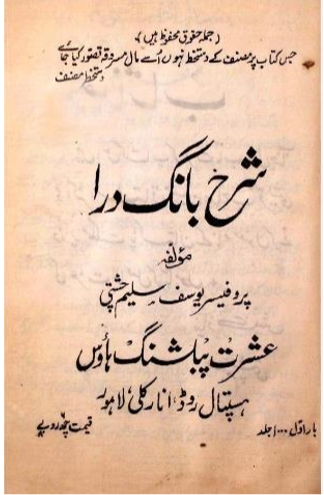 (جملہ حقوق محفوظ ہیں)
جس کتاب پر مصنف کے دستخط نہوں اُسے مال مسروقہ تصور کیا جائے
دستخط مصنف
شرح بانگ درا
مؤلفہ
پروفیسر یوسف سلیم چشتی
عشرت پبلشنگ ہاؤس
ہسپتال روڈ، انارکلی، لاہور
بار اول ۱۰۰۰ جلد
قیمت چھ روپے